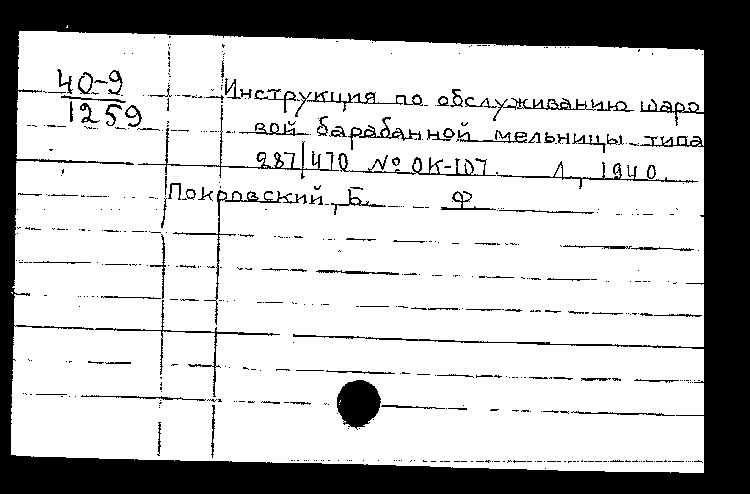 40-9
1259
Инструкция по обслуживанию шаро
вой барабанной мельницы типа
287/470 № ОК-107. Л., 1940.
Покровский, Б. Ф.